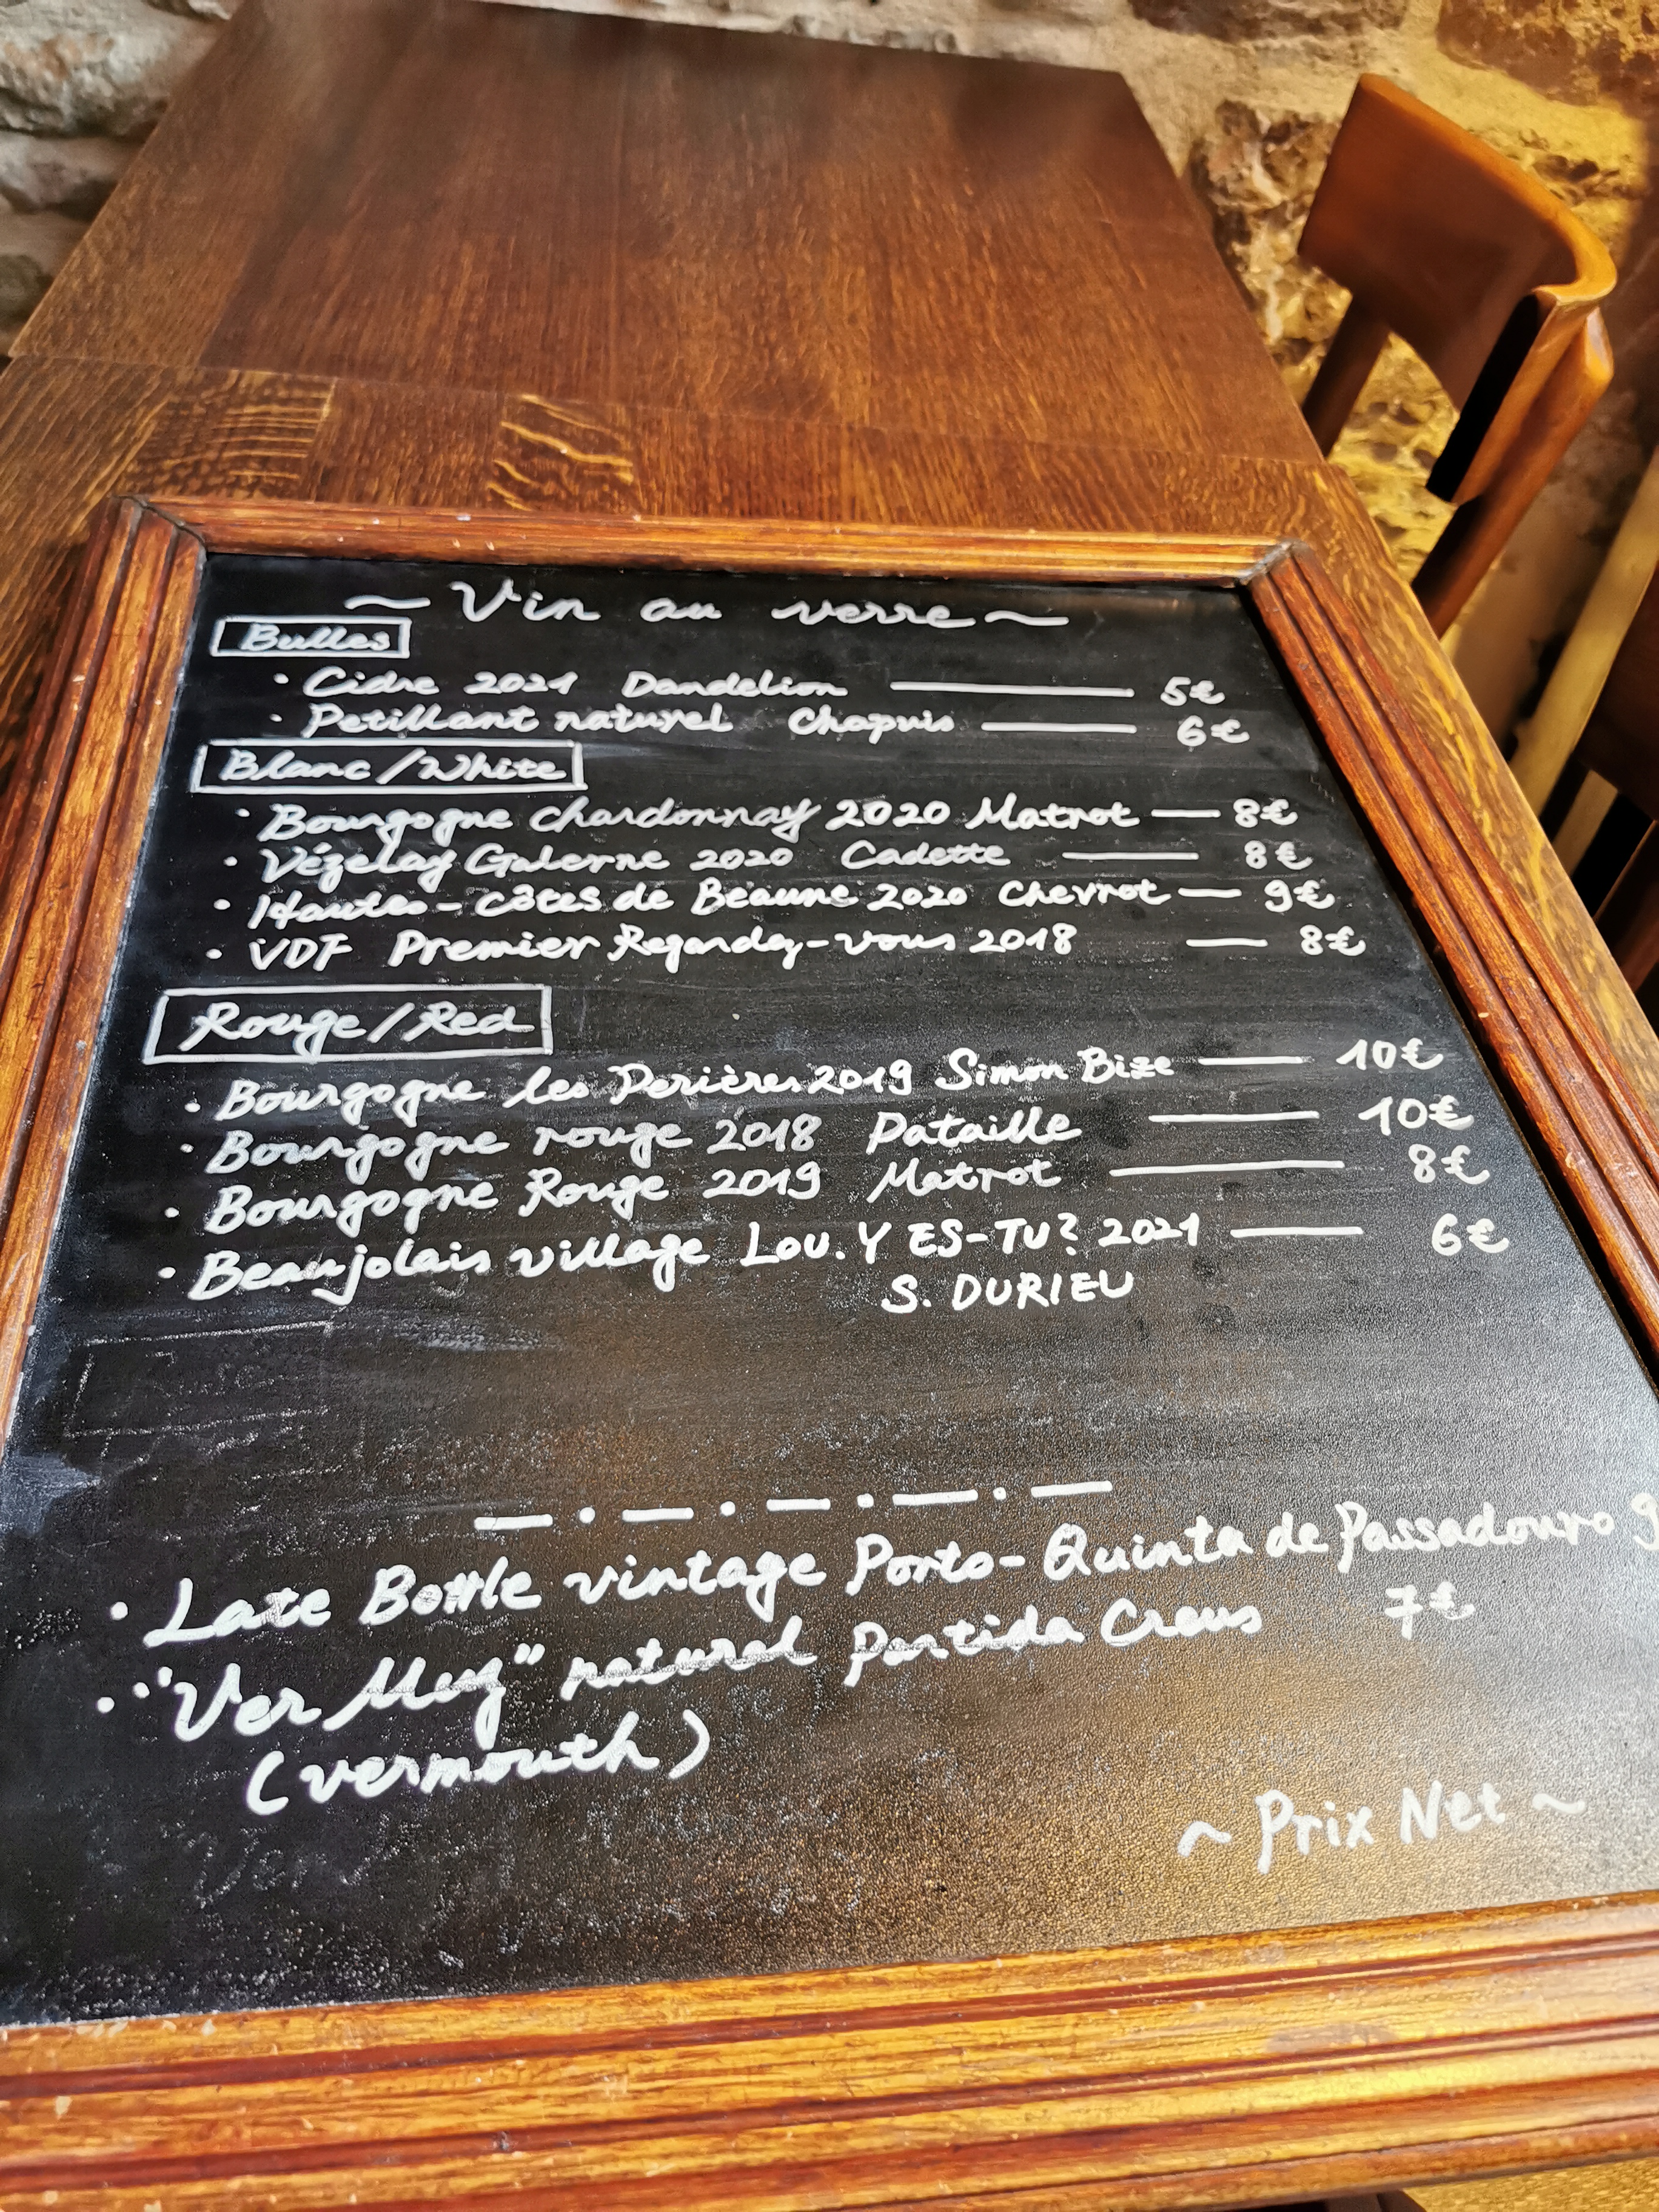 ~ Vin au verre ~
Bulles
· Cidre 2021 Dandelion — 5€
· Petillant naturel Chapuis — 6€
Blanc/White
· Bourgogne chardonnay 2020 Matrot — 8€
· Vézelay Galerne 2020 Cadette — 8€
· Hautes-Côtes de Beaune 2020 Chevrot — 9€
· VDF Premier Regardez-vous 2018 — 8€
Rouge/Red
· Bourgogne les Perières 2019 Simon Bize — 10€
· Bourgogne rouge 2018 Pataille — 10€
· Bourgogne Rouge 2019 Matrot — 8€
· Beaujolais village Lou. Y ES-TU? 2021 — 6€
S. DURIEU
· Late Bottle vintage Porto - Quinta de Passadouro 9
· "Ver Muz" naturel Partida Creus 7€
(vermouth)
~ Prix Net ~